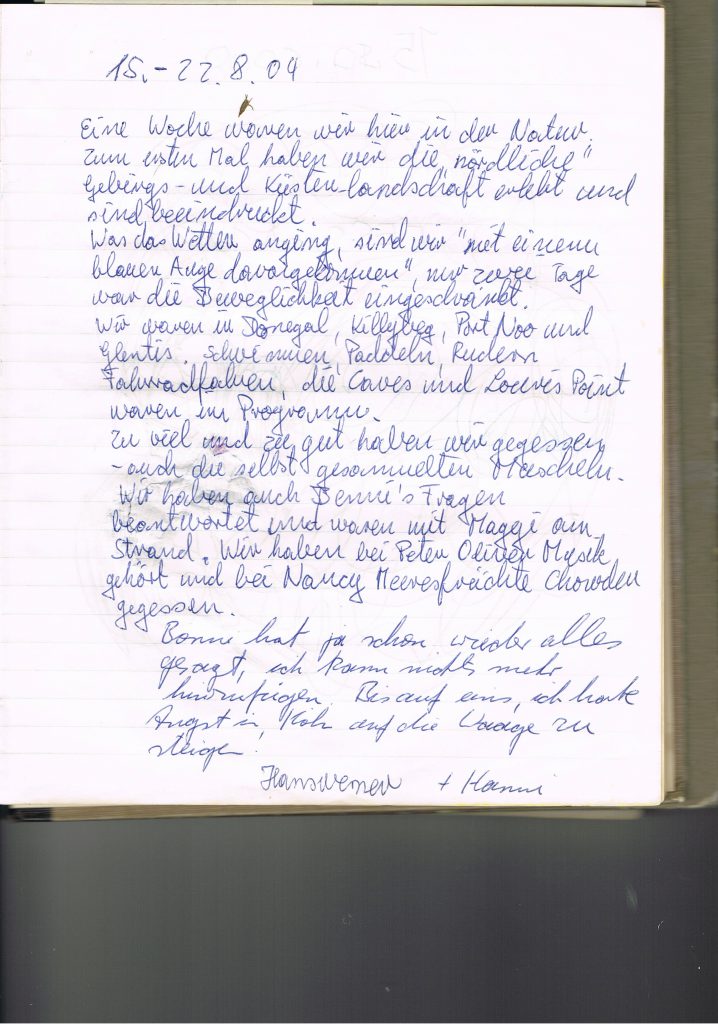 15.-22.8.04
Eine Woche waren wir hier in der Natur.
Zum ersten Mal haben wir die „nördliche"
Gebirgs- und Küsten-landschaft erlebt und
sind beeindruckt.
Was das Wetter anging, sind wir "mit einem
blauen Auge davongekommen", nur zwei Tage
war die Beweglichkeit eingeschränkt.
Wir waren in Donegal, Killybeg, Port Noo und
Glentis. Schwimmen, Paddeln, Rudern
Fahrradfahren, die Caves und Louvis Point
waren im Programm.
Zu viel und zu gut haben wir gegessen
- auch die selbst gesammelten Muscheln.
Wir haben auch Bennie's Fragen
beantwortet und waren mit Maggi am
Strand. Wir haben bei Peter Oliver Musik
gehört und bei Nancy Meeresfrüchte Chowder
gegessen.
Bonne hat ja schon wieder alles
gesagt, ich kann nichts mehr
hinzufügen. Bis auf eins, ich habe
Angst in Köln auf die Waage zu
steigen.
Hanswerner + Hanni